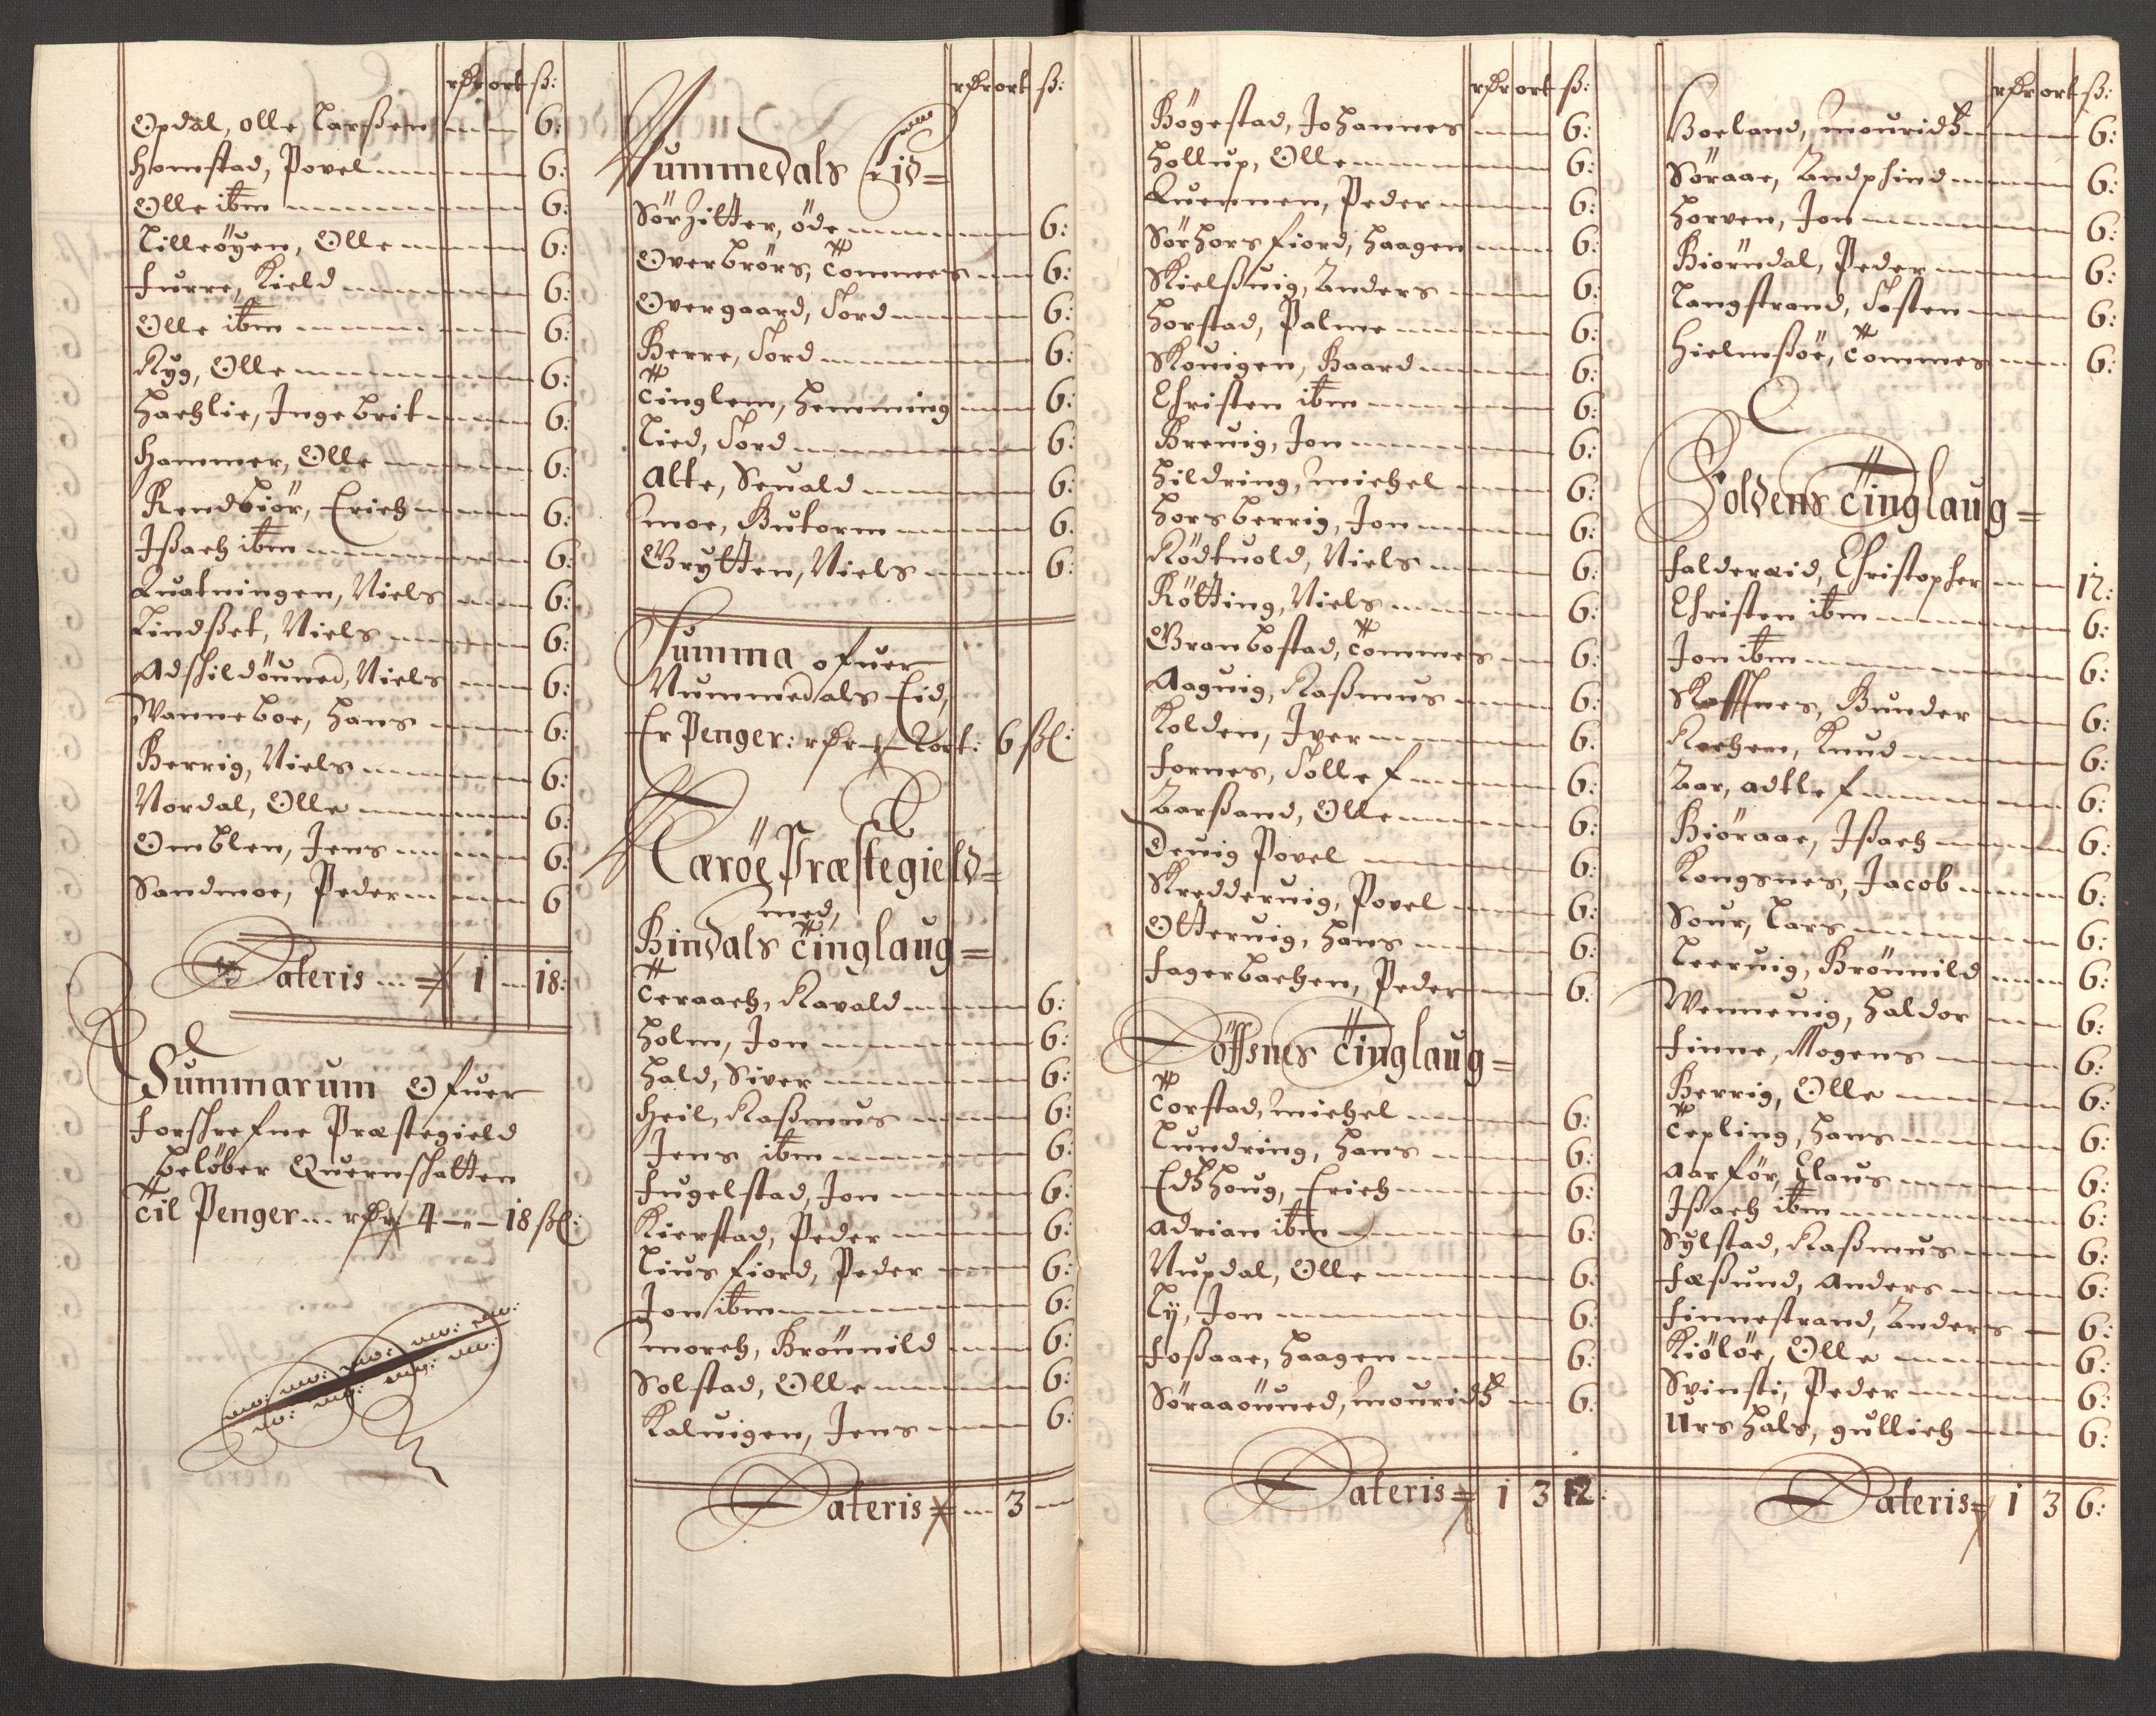 rdr ort ß:
Opdal, olle Larßen 6:
Homstad, Povel 6:
Olle ibm 6:
Lilleöyen, Olle 6:
Furre, Kield 6:
Olle ibm 6:
Ryg, Olle 6:
Hachlie, Ingebrit 6:
Hammer, Olle 6:
Rendbiör, Erich 6:
Ißach ibm 6:
Quatningen, Niels 6:
Lindset, Niels 6:
Adskildöuned, Niels 6:
Wanneboe, Hans 6:
Berrig, Niels 6:
Nordal, Olle 6:
Omblen, Jens 6:
Sandmoe, Peder 6
Lateris 1 — 18:
Summarum Ofuer
Forschrefne Præstegield
beløber Quernschatten
Til Penger rdr 4 — 18 ßl:
rdr ort ß:
Nummedals Eid
Sörzitter, öde 6:
Overbrörs, Tommes 6:
Overgaard, Tord 6:
Berre, Tord 6:
Tinglem, Hemming 6:
Lied, Tord 6:
Alte, Seuald 6:
moe, Butorm 6.
Grÿtten, Niels 6:
Summa ofuer
Nummedals Eid,
Er Penger: rdr — 2 ort: 6 ßl:
Nærøe Præstegield
med,
Bindals Tinglaug
Teraach, Ravald 6:
Holm, Jon 6:
Hald, Siver 6:
Heil, Raßmus 6:
Jens ibm 6:
Fugelstad, Jon 6:
Kierstad, Peder 6:
Liusfiord, Peder 6:
Jon ibm 6:
moreh, Brönnild 6:
Solstad, Olle 6:
Kalvigen, Jens 6:
Lateris — 3 —
rdr ort ß:
Bögestad, Johannes 6:
Hollup, Olle 6:
Quennen, Peder 6:
Sörhorsfiord, Haagen 6:
Skielßuig, Anders 6:
Horstad, Palme 6:
Skouigen, Baard 6:
Christen ibm 6:
Breuig, Jon 6:
Hildring, michel 6:
Horsberrig, Jon 6:
Rödtuold, Niels 6:
Kötting, Niels 6:
Granbostad, Tommes 6:
Aaguig, Raßmus 6:
Kolden, Iver 6:
Fornes, Tollef 6:
Aarßand, Olle 6:
Deuig Povel 6:
Skredderuig, Povel 6:
Otteruig, Hans 6:
Fagerbachen, Peder 6:
Töffsnes Tinglaug
Torstad, michel 6:
Lundring, Hans 6:
Edshoug, Erich 6:
Adrian ibm 6:
Nupdal, Olle 6:
Ly, Jon 6:
Foßaae, Haagen 6:
Söraaöuned, mouridz 6:
Lateris 1 3 12:
rdr ort ß:
Boeland, mouridz 6:
Söraae, Andphind 6:
Horven, Jon 6:
Biörndal, Peder 6:
Langstrand, Tosten 6:
Hielmsöe, Tommes 6:
Foldens Tinglaug
Falderæid, Christopher 12:
Christen ibm 6:
Jon ibm 6:
Roffsnes, Gunder 6:
Kochem, Knud 6:
Aar, Adtlef 6:
Biöraae, Ißach 6:
Kongsnes, Jacob 6:
Sour, Lars 6:
Leeruig, Brönnild 6:
Wenneuig, Haldor 6:
Finne, Mogens 6:
Berrig, Olle 6:
Tepling, Hans 6:
Aarför, Claus 6:
Ißach ibm 6:
Sylstad, Raßmus 6:
Foßund, Anders 6:
Finnestrand, Anders 6:
Kiölöe, Olle 6:
Svinsti, Peder 6:
Urshals, gullich 6:
Lateris 1 3 6: